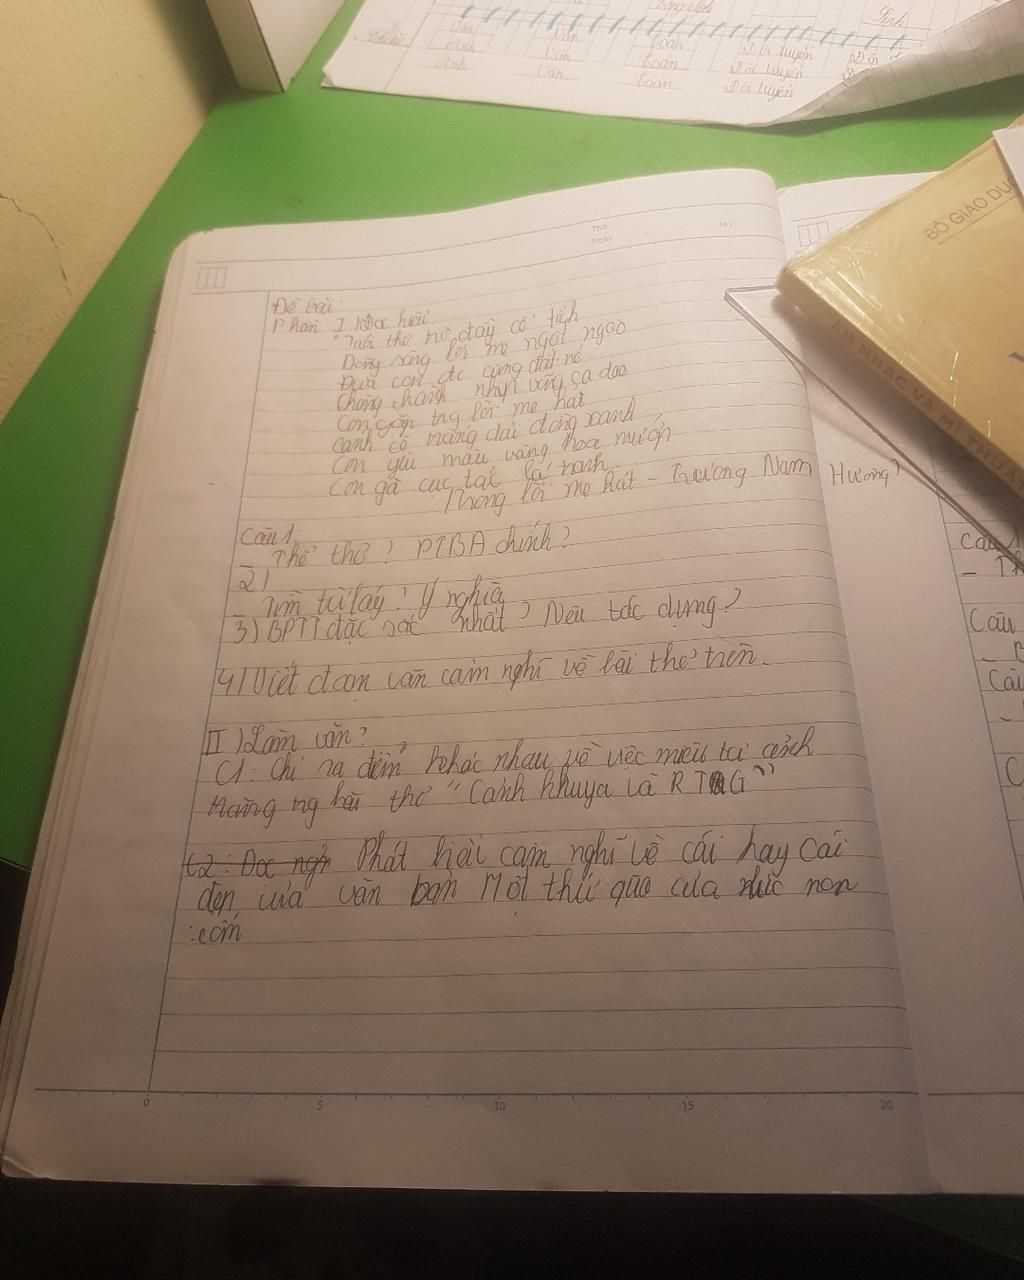 Sinh
Văn Toán Đội tuyển
Anh Văn Toán Đội tuyển
Anh Văn Toán Đội tuyển
Thứ
Ngày
No.
BỘ GIÁO DỤC
ÂM NHẠC VÀ MĨ THUẬT
Đề bài:
Phần I Đọc hiểu
"Tuổi thơ nơ đầy cổ tích
Dòng sông lời mẹ ngọt ngào
Đưa con đc cùng đất nc
Chòng chành nhịp võng ca dao
Con gặp tng lời mẹ hát
Cánh cò trắng dải đồng xanh
Con yêu màu vàng hoa mướp
Con gà cục tác lá chanh
Trong lời mẹ hát - Trương Nam Hương?
Câu 1:
_ Thể thơ? PTBĐ chính?
2)
_ Tìm từ láy? Ý nghĩa
3) BPTT đặc sắc nhất? Nêu tác dụng?
4) Viết đoạn văn cảm nghĩ về bài thơ trên.
II) Làm văn?
C1: Chỉ ra điểm khác nhau về việc miêu tả cảnh
trăng ng bài thơ "Cảnh khuya và RTG"
C2: Đọc Phát biểu cảm nghĩ về cái hay cái
đẹp của văn bản Một thứ quà của lúa non
: cốm
Câu
Câu
Câu
C